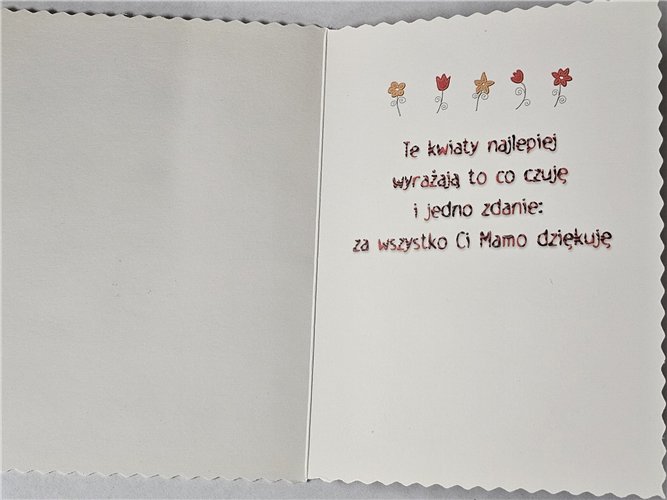 Te kwiaty najlepiej
wyrażają to co czuję
i jedno zdanie:
za wszystko Ci Mamo dziękuję